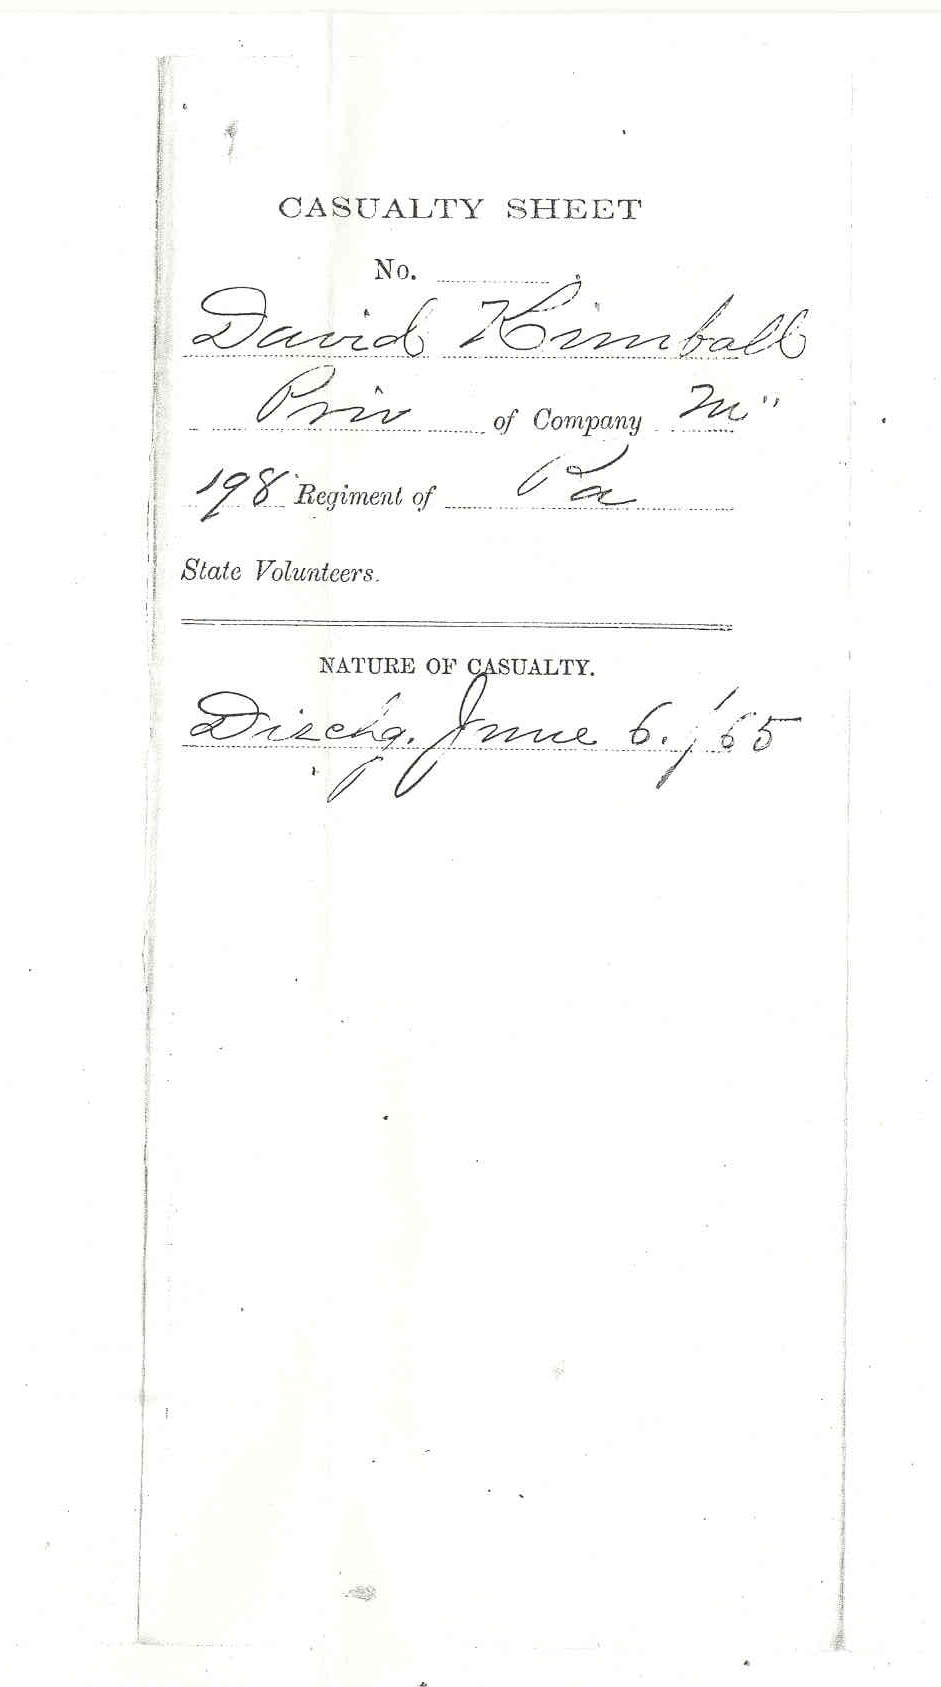 CASUALTY SHEET
No.
David Kimball
Priv of Company M"
198 Regiment of Pa
State Volunteers.
NATURE OF CASUALTY.
Dischg. June 6. /65